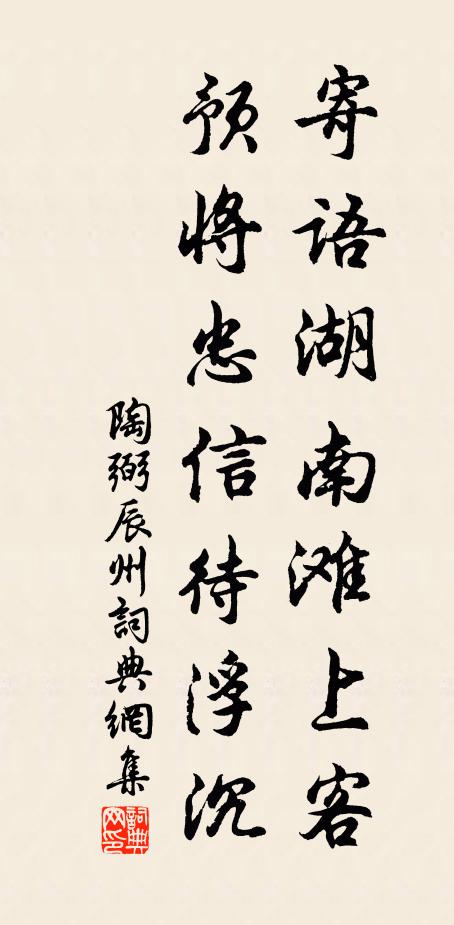 寄语湖南滩上客
预将忠信待浮沉
陶弼辰州詞典網集
詞典网印